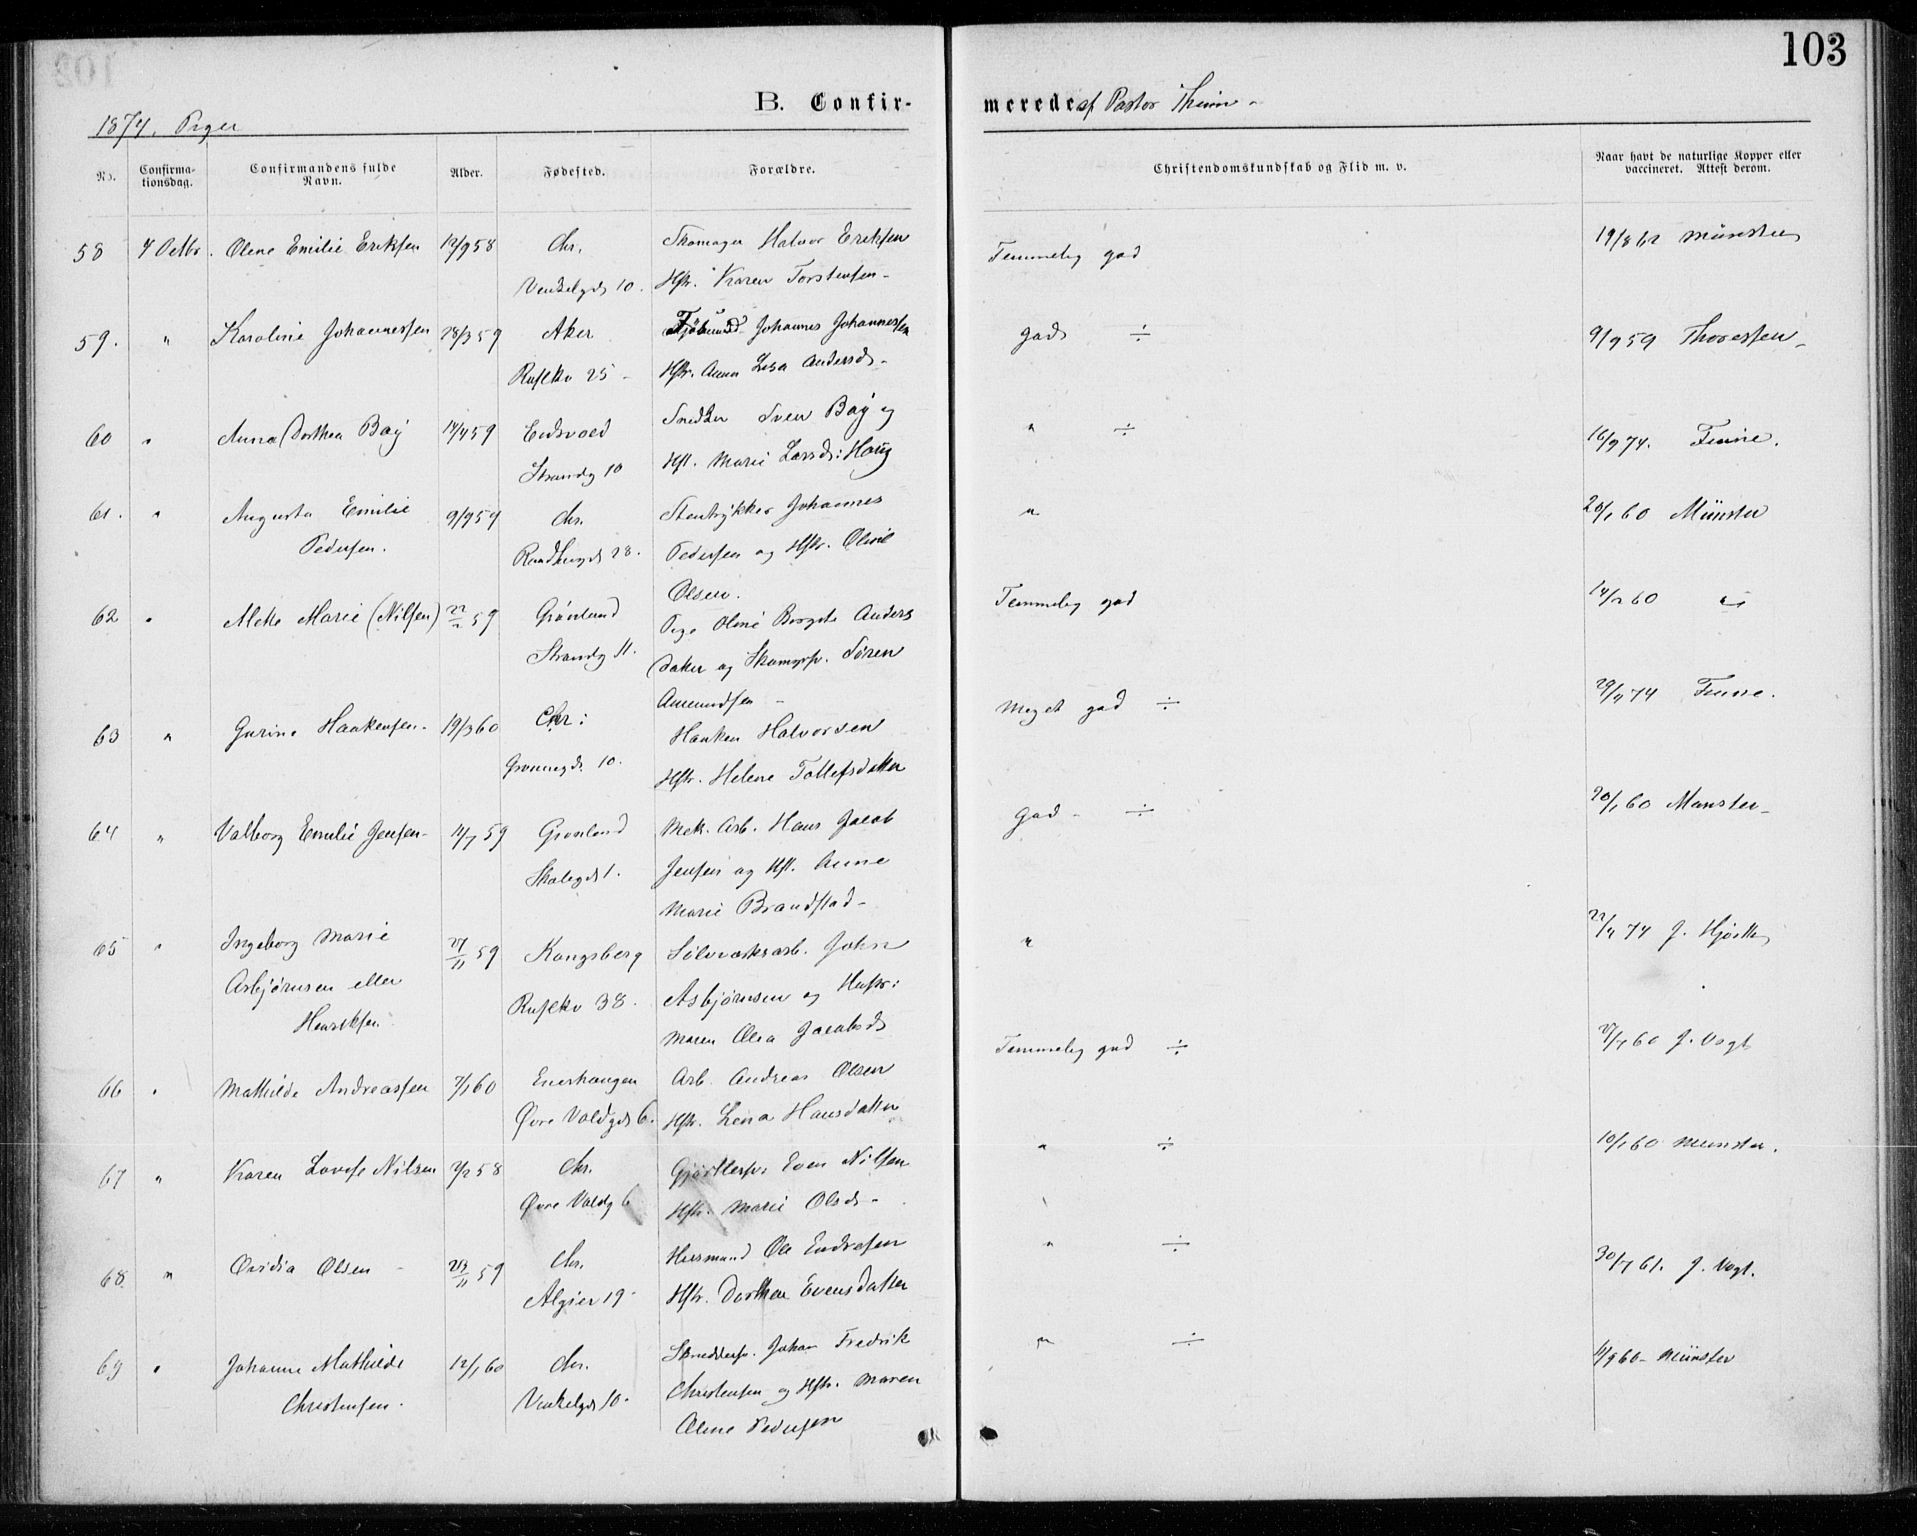 103
B. Confir- merede af Pastor
1874. Piger
No. Confirmationsdag. Confirmandens fulde Navn. Alder. Fødested. Forældre. Christendomskundskab og Flid m. v. Naar havt de naturlige Kopper eller vaccineret. Attest derom.
58 4 Octbr. Olene Emilie Eriksen 12/9 58 Chr. Skomager Halvor Eriksen Temmelig god 19/8 62 Münster
10. Hstr. Karen Torstensen-
59. " Karoline Johannessen 28/3 59 Aker Johannes Johannessen god ÷ 9/9 59 Thoresen-
Ruflkv 25 - Hstr. Anna Lisa Andersd-
60 " Anna Dorthea Bay 14/4 59 Eidsvold Snedker Sven Bay og " ÷ 16/9 74.
Strandg 10 Hst. Marie Larsd: Haug
61. " Augusta Emilie 9/9 59 Chr. Stentrykker Johannes " 20/1 60 Münster
Pedersen. 28. Pedersen og Hstr. Oline
Olsen.
62 " Mette Marie (Nilsen) 22/2 59 Grønland Pige Oline Birgite Anders Temmelig god 14/2 60 "
Strandg 11. datter og Søren
Amundsen -
63 " Gurine Haakensen- 19/3 60 Chr: Haaken Halvorsen Meget god ÷ 29/4 74
10. Hstr. Helene Tollefsdatter
64 " Valborg Emilie Jensen- 11/7 59 Grønland Mek. Arb. Hans Jacob God - ÷ 20/1 60 Münster-
1. Jensen og Hst. Anne
Marie Brandstad-
65 " Ingeborg Marie 27/11 59 Kongsberg Sølvværksarb. John " 22/4 74 J. Hjorth
Asbjørnsen eller Ruflkv 38. Asbjørnsen og Hustr:
Henriksen. Maren Olea Jacobsd
66 " Mathilde Andreassen 7/1 60 Enerhaugen Arb. Andreas Olsen Temmelig god ÷ 27/7 60 J. Vogt
Øvre Voldgd 6. Hstr. Lena Hansdatter
67 " Karen Lovise Nilsen 2/2 58 Chr. Even Nilsen " ÷ 10/1 60 Münster.
Øvre Voldg 6 Hstr. Marie Olsd-
68. " Ovidia Olsen - 23/11 59 Chr. Ole Endresen " ÷ 30/7 61. J. Vogt.
Algier 19- Hstr. Dorthea Evensdatter
69 " Johanne Mathilde 12/1 60 Chr. Johan Fredrik " ÷ 11/9 60- Münster
Christensen. 10. Christensen og Hstr. Maren
Oline Pedersen